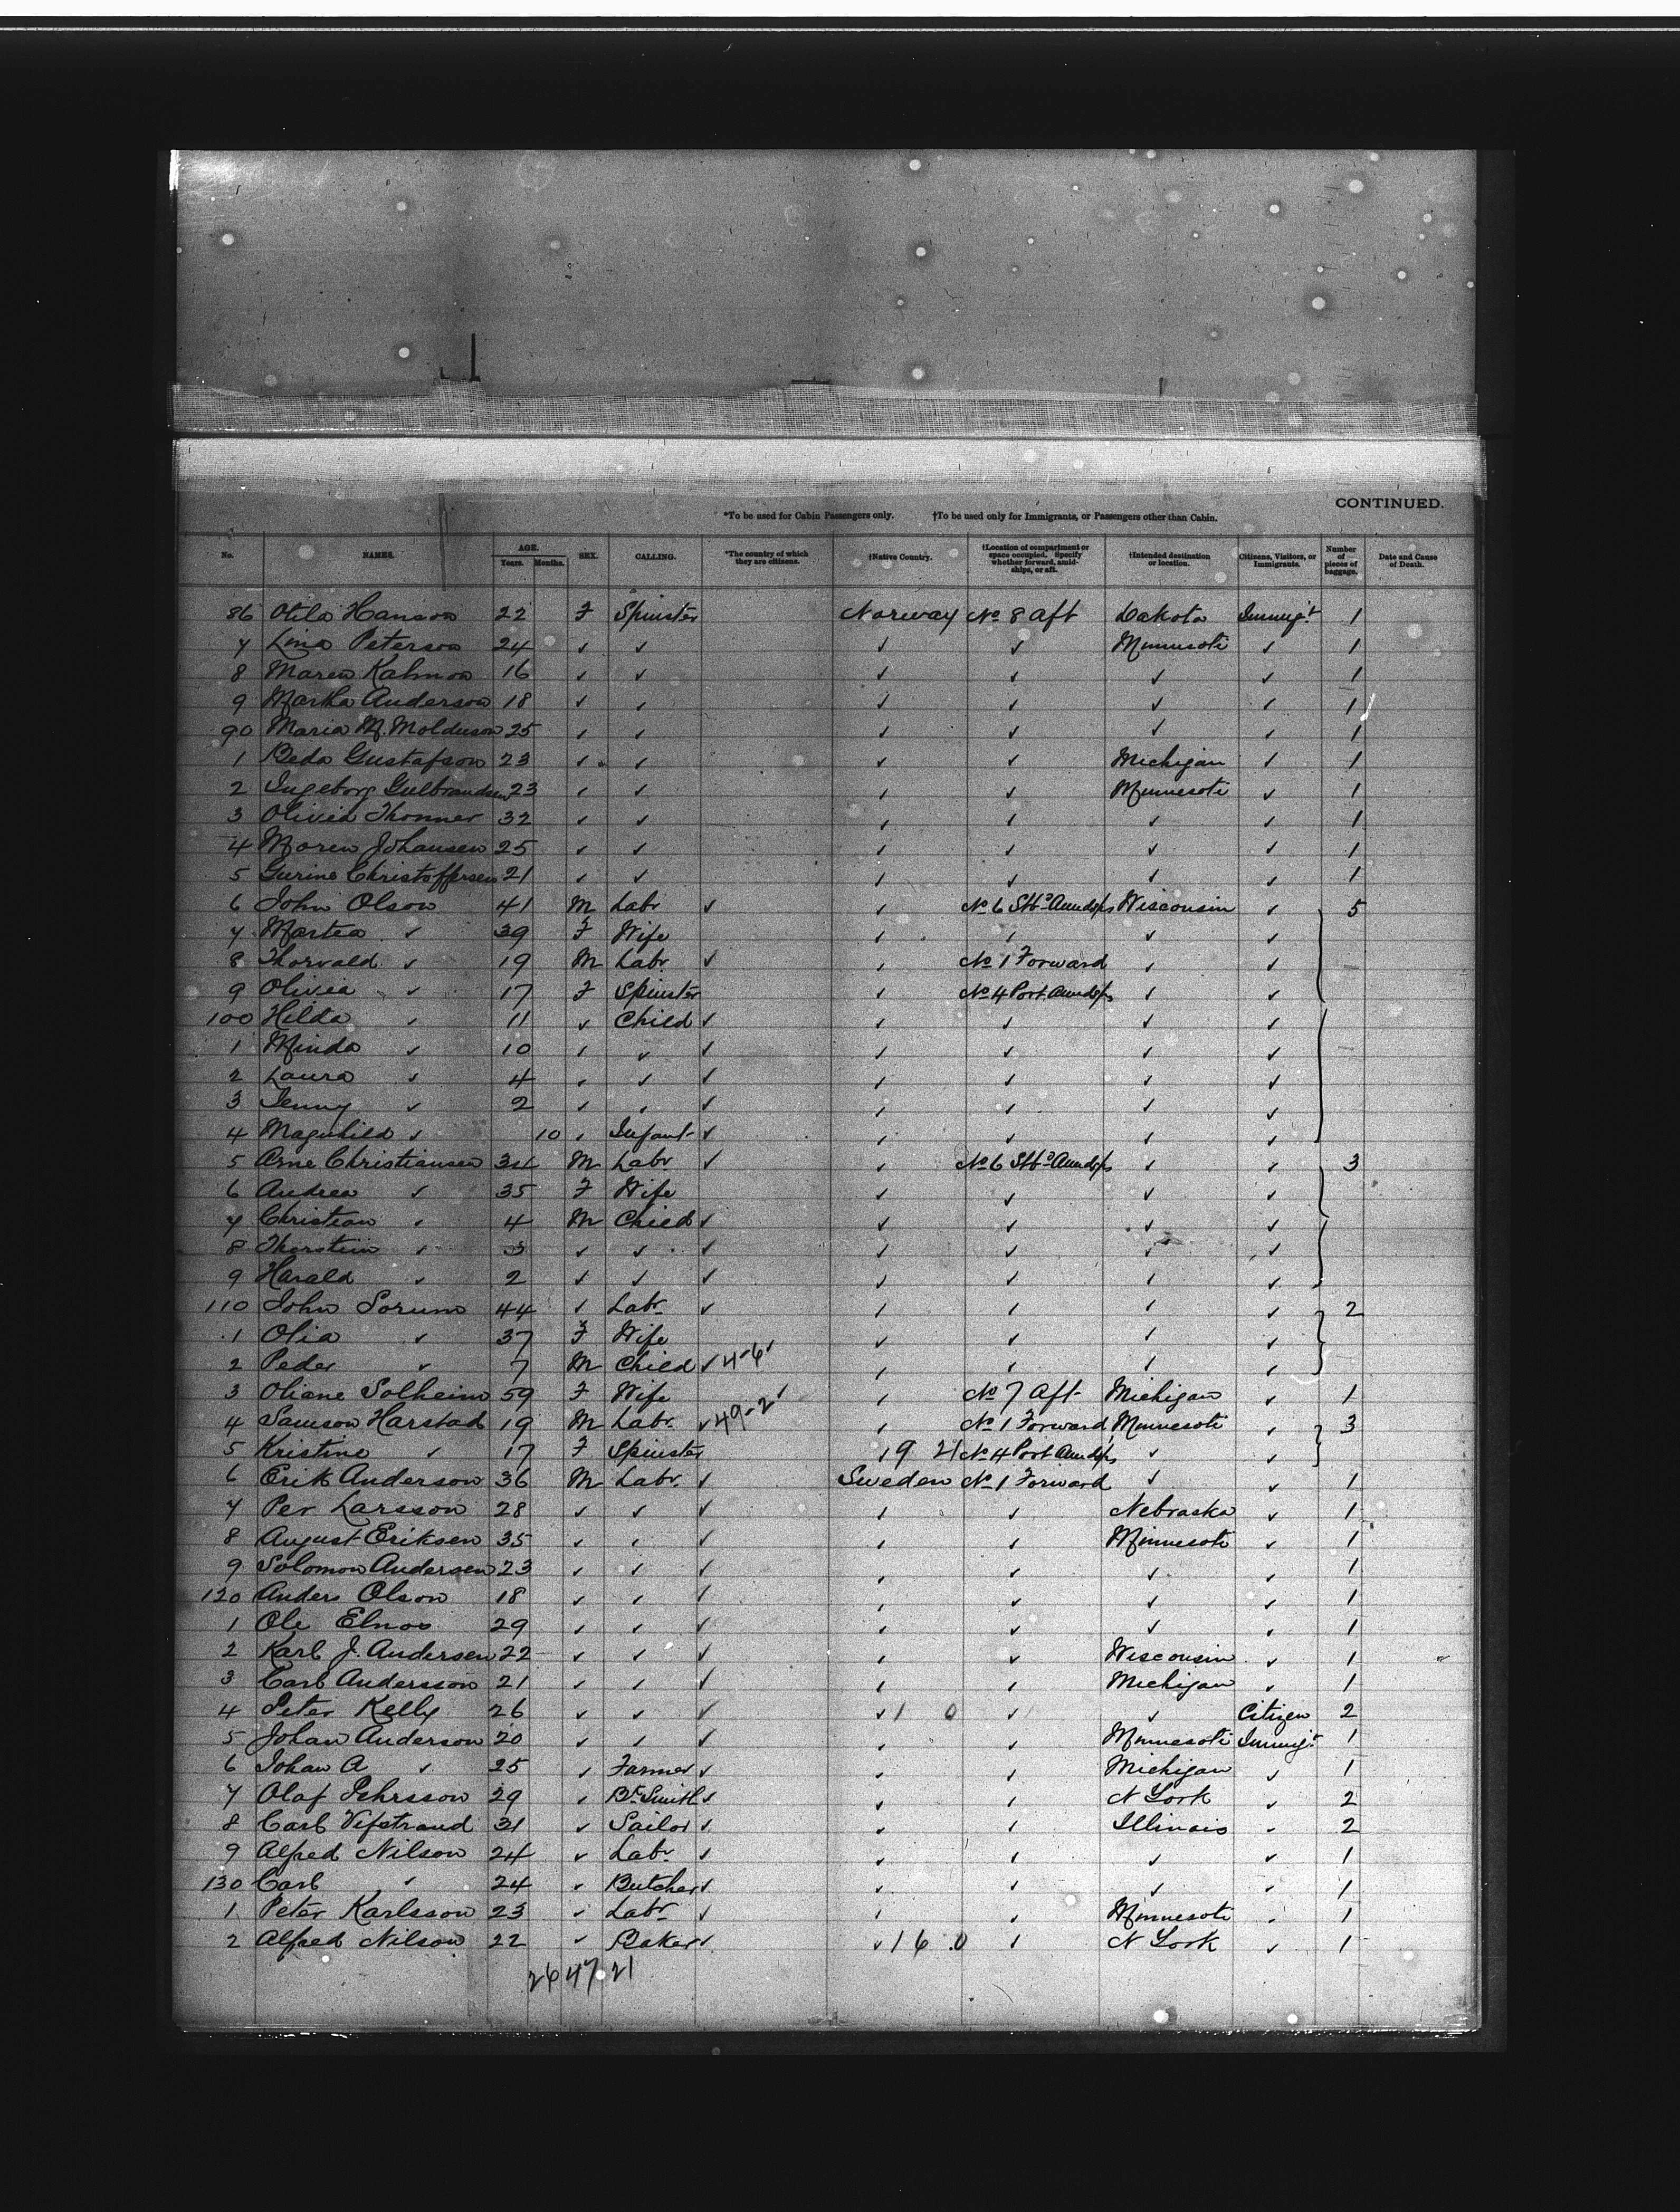 CONTINUED.
*To be used for Cabin Passengers only. †To be used only for Immigrants, or Passengers other than Cabin.
No. NAMES. AGE. Years. Months. SEX. CALLING. *The country of which they are citizens. †Native Country. †Location of compartment or space occupied. Specify whether forward, amidships, or aft. †Intended destination or location. Citizens, Visitors, or Immigrants. Number of pieces of baggage. Date and Cause of Death.
86 Otila Hanson 22 F Spinster Norway No 8 Aft Dakota Immigt 1
7 Lina Peterson 24 ✓ ✓ ✓ ✓ Minnesota ✓ 1
8 Maren 16 ✓ ✓ ✓ ✓ ✓ ✓ 1
9 Martha Anderson 18 ✓ ✓ ✓ ✓ ✓ ✓ 1
90 Maria M. 25 ✓ ✓ ✓ ✓ ✓ ✓ 1
1 Beda Gustafson 23 ✓ ✓ ✓ ✓ Michigan ✓ 1
2 Ingeborg Gulbrandsen 23 ✓ ✓ ✓ ✓ Minnesota ✓ 1
3 Olivia Thonner 32 ✓ ✓ ✓ ✓ ✓ ✓ 1
4 Maren Johansen 25 ✓ ✓ ✓ ✓ ✓ ✓ 1
5 Gurine Christoffersen 21 ✓ ✓ ✓ ✓ ✓ ✓ 1
6 John Olson 41 M Labr ✓ ✓ No 6 Stbd Amdsps Wisconsin ✓ 5
7 Martea ✓ 39 F Wife ✓ ✓ ✓ ✓
8 Thorvald ✓ 19 M Labr ✓ ✓ No 1 Forward ✓ ✓ —
9 Olivia ✓ 17 F Spinster ✓ No 4 Port Amdsps ✓ ✓
100 Hilda ✓ 11 ✓ Child ✓ ✓ ✓ ✓ ✓
1 Minda ✓ 10 ✓ ✓ ✓ ✓ ✓ ✓ ✓ —
2 Laura ✓ 4 ✓ ✓ ✓ ✓ ✓ ✓ ✓
3 Jenny ✓ 2 ✓ ✓ ✓ ✓ ✓ ✓ ✓
4 Magnhild ✓ 10 ✓ Infant ✓ ✓ ✓ ✓ ✓
5 Arne Christiansen 34 M Labr ✓ ✓ No 6 Stbd Amdsps ✓ ✓ 3
6 Andrea ✓ 35 F Wife ✓ ✓ ✓ ✓
7 Christian ✓ 4 M Child ✓ ✓ ✓ ✓ ✓
8 Thorstein ✓ 3 ✓ ✓ ✓ ✓ ✓ ✓ ✓
9 Harald ✓ 2 ✓ ✓ ✓ ✓ ✓ ✓ ✓
110 John Sorum 44 ✓ Labr ✓ ✓ ✓ ✓ ✓ 2
1 Olia ✓ 37 F Wife ✓ ✓ ✓ ✓
2 Peder ✓ 7 M Child ✓ 4-6 ✓ ✓ ✓ ✓ ✓
3 Oliane Solheim 59 F Wife ✓ No 7 Aft Michigan ✓ 1
4 Samson Harstad 19 M Labr. ✓ 49-2 ✓ ✓ No 1 Forward Minnesota ✓ 3
5 Kristine ✓ 17 F Spinster ✓ 9 21 No 4 Port Amdsps ✓ ✓
6 Erik Anderson 36 M Labr. ✓ Sweden No 1 Forward ✓ ✓ 1
7 Per Larsson 28 ✓ ✓ ✓ ✓ ✓ Nebraska ✓ 1
8 August Eriksen 35 ✓ ✓ ✓ ✓ ✓ Minnesota ✓ 1
9 Solomon Andersen 23 ✓ ✓ ✓ ✓ ✓ ✓ ✓ 1
120 Anders Olson 18 ✓ ✓ ✓ ✓ ✓ ✓ ✓ 1
1 Ole 29 ✓ ✓ ✓ ✓ ✓ ✓ ✓ 1
2 Karl J. Andersen 22 ✓ ✓ ✓ ✓ ✓ Wisconsin ✓ 1
3 Carl Andersson 21 ✓ ✓ ✓ ✓ ✓ Michigan ✓ 1
4 Peter Kelly 26 ✓ ✓ ✓ ✓ 1 0 ✓ ✓ Citizen 2
5 Johan Anderson 20 ✓ ✓ ✓ ✓ ✓ Minnesota Immigt 1
6 Johan A ✓ 25 ✓ Farmer ✓ ✓ ✓ Michigan ✓ 1
7 Olaf Pehrsson 29 ✓ Bk Smith ✓ ✓ ✓ N York ✓ 2
8 Carl Vifstrand 31 ✓ Sailor ✓ ✓ ✓ Illinois ✓ 2
9 Alfred Nilson 24 ✓ Labr ✓ ✓ ✓ ✓ ✓ 1
130 Carl ✓ 24 ✓ Butcher ✓ ✓ ✓ ✓ ✓ 1
1 Peter Karlsson 23 ✓ Labr ✓ ✓ ✓ Minnesota ✓ 1
2 Alfred Nilson 22 ✓ Baker ✓ ✓ 16 0 ✓ N York ✓ 1
26 47 21